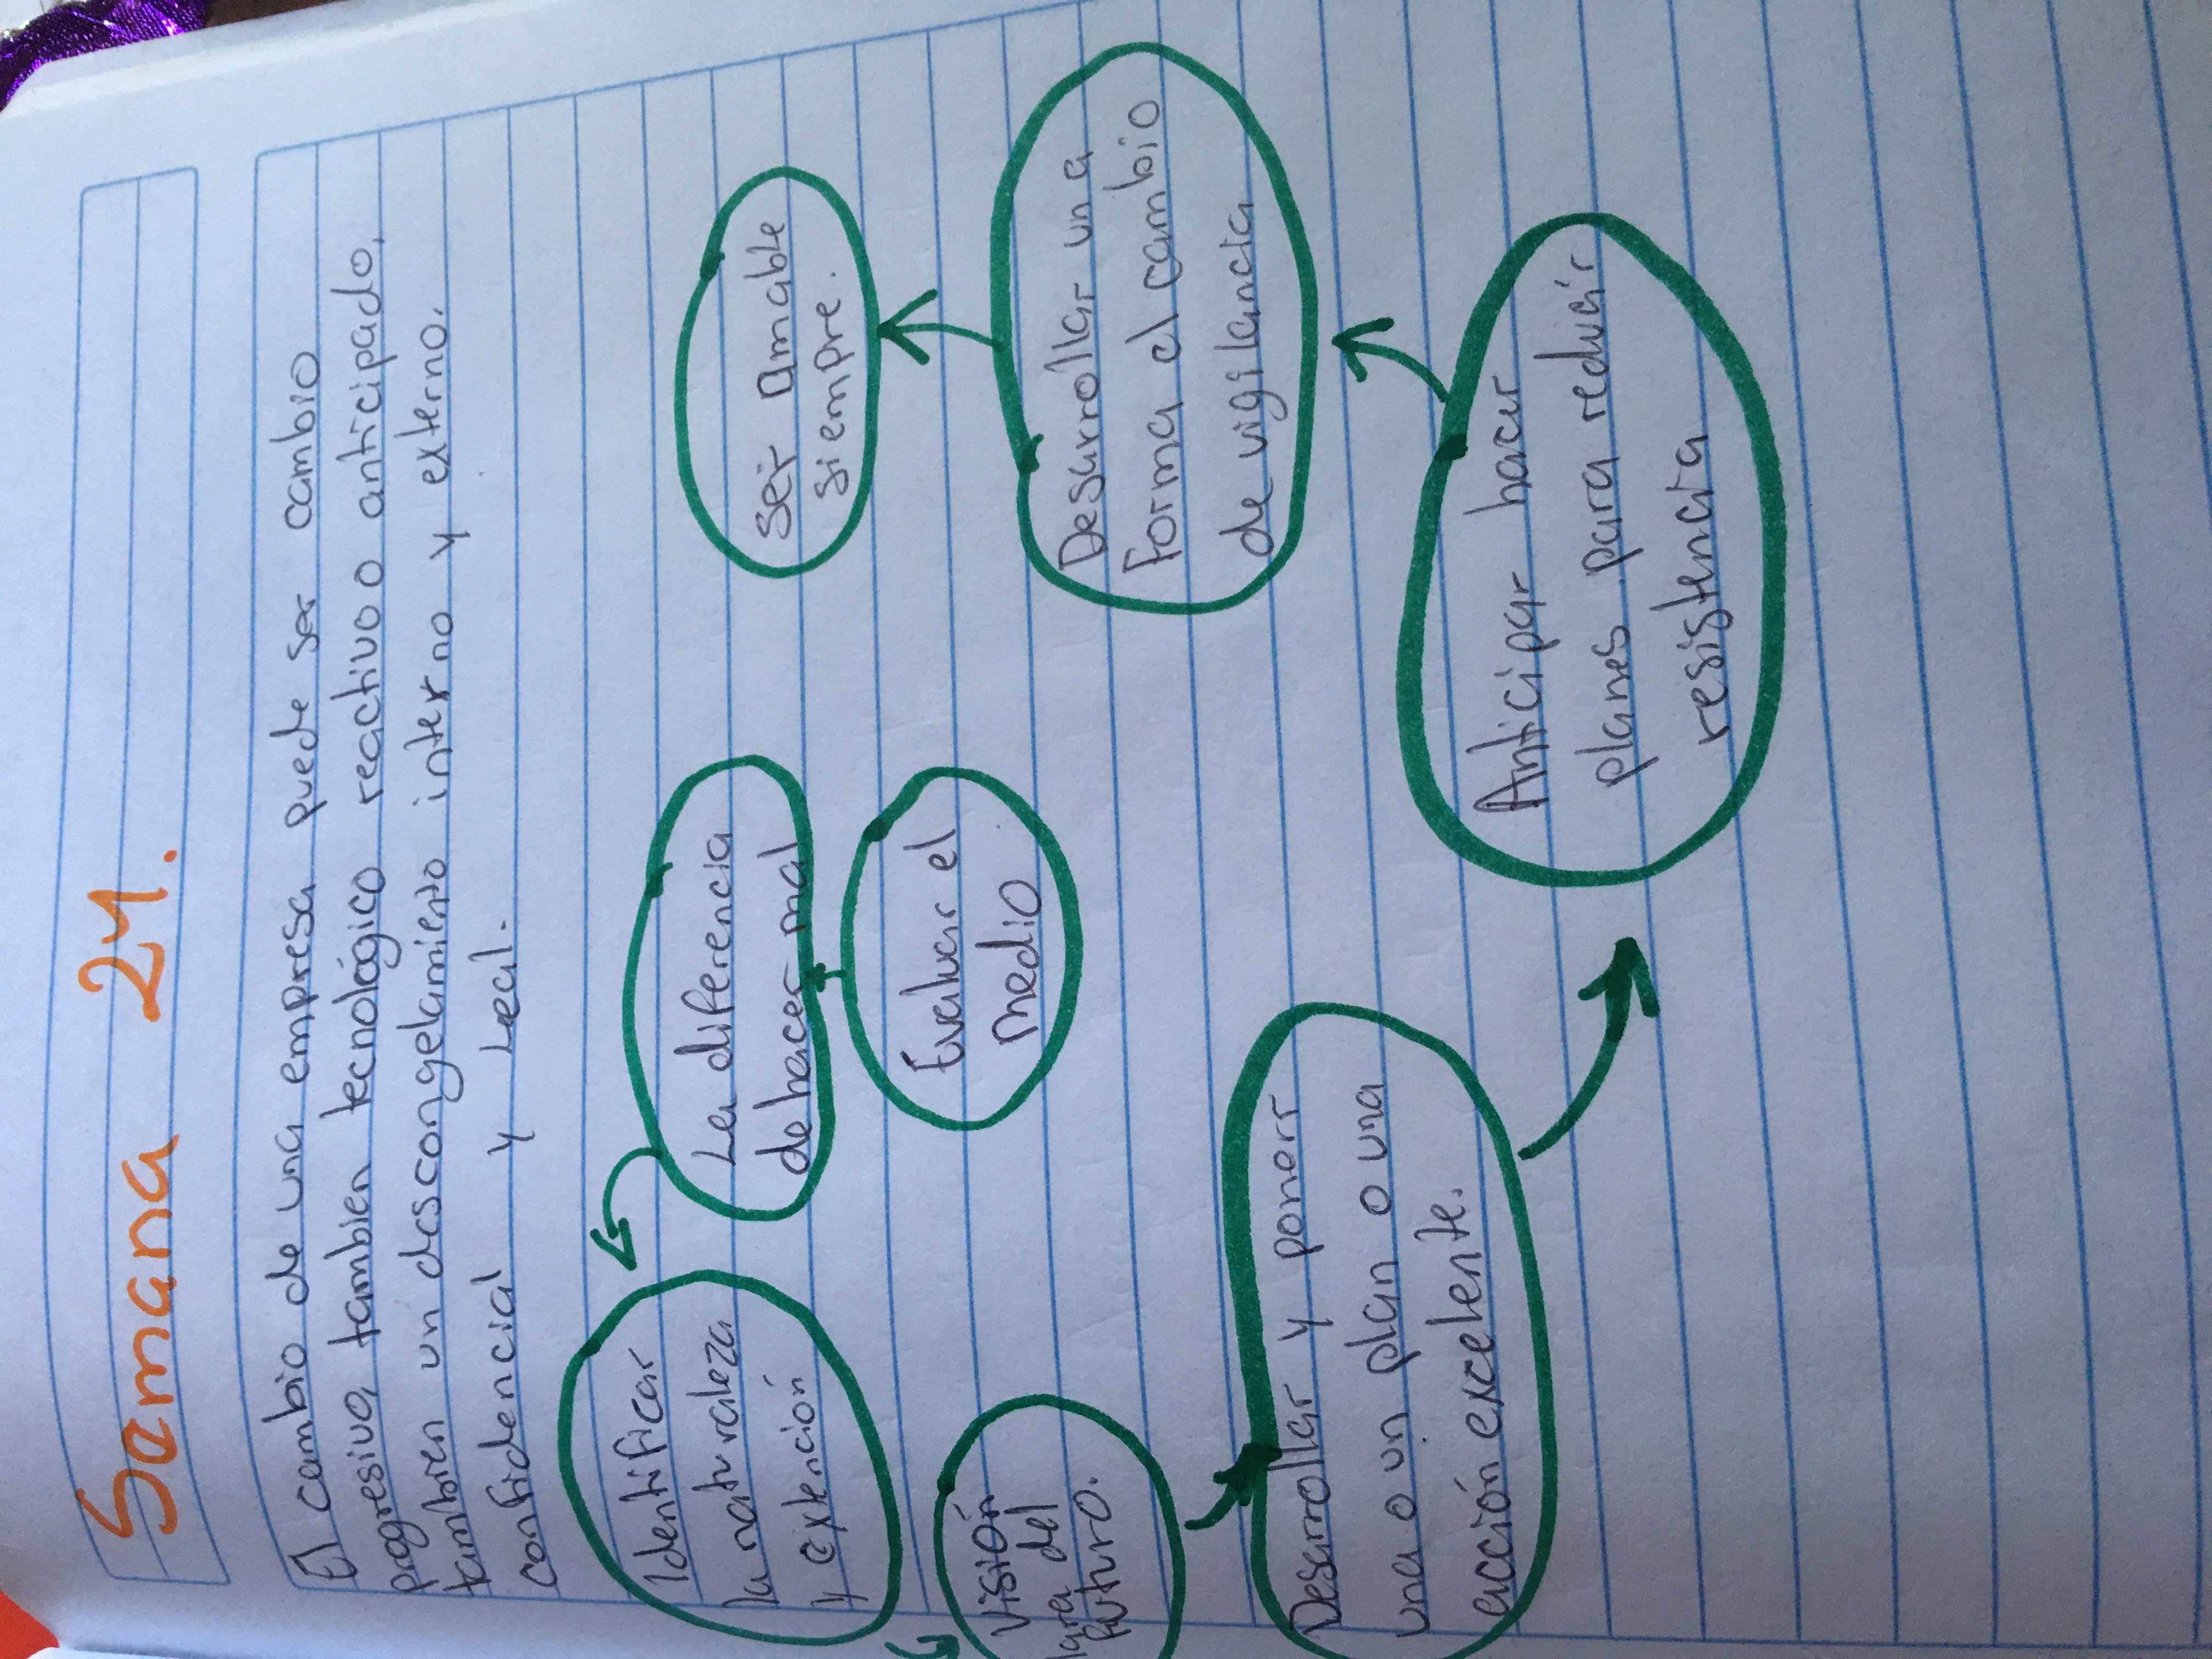 Samana 24.
El cambio de una empresa puede ser cambio
progresivo, tambien tecnológico reactivo o anticipado,
tambien un descongelamiento interno y externo.
confidencial y Leal.
Identificar
la naturaleza
y extención
La diferencia
de hacer mal
Evaluar el
medio
Ser amable
siempre.
Visión
del
futuro.
Desarrollar y poner
una o un plan o una
acción excelente.
Anticipar hacer
planes para reducir
resistencia
Desarrollar una
Forma el cambio
de vigilancia